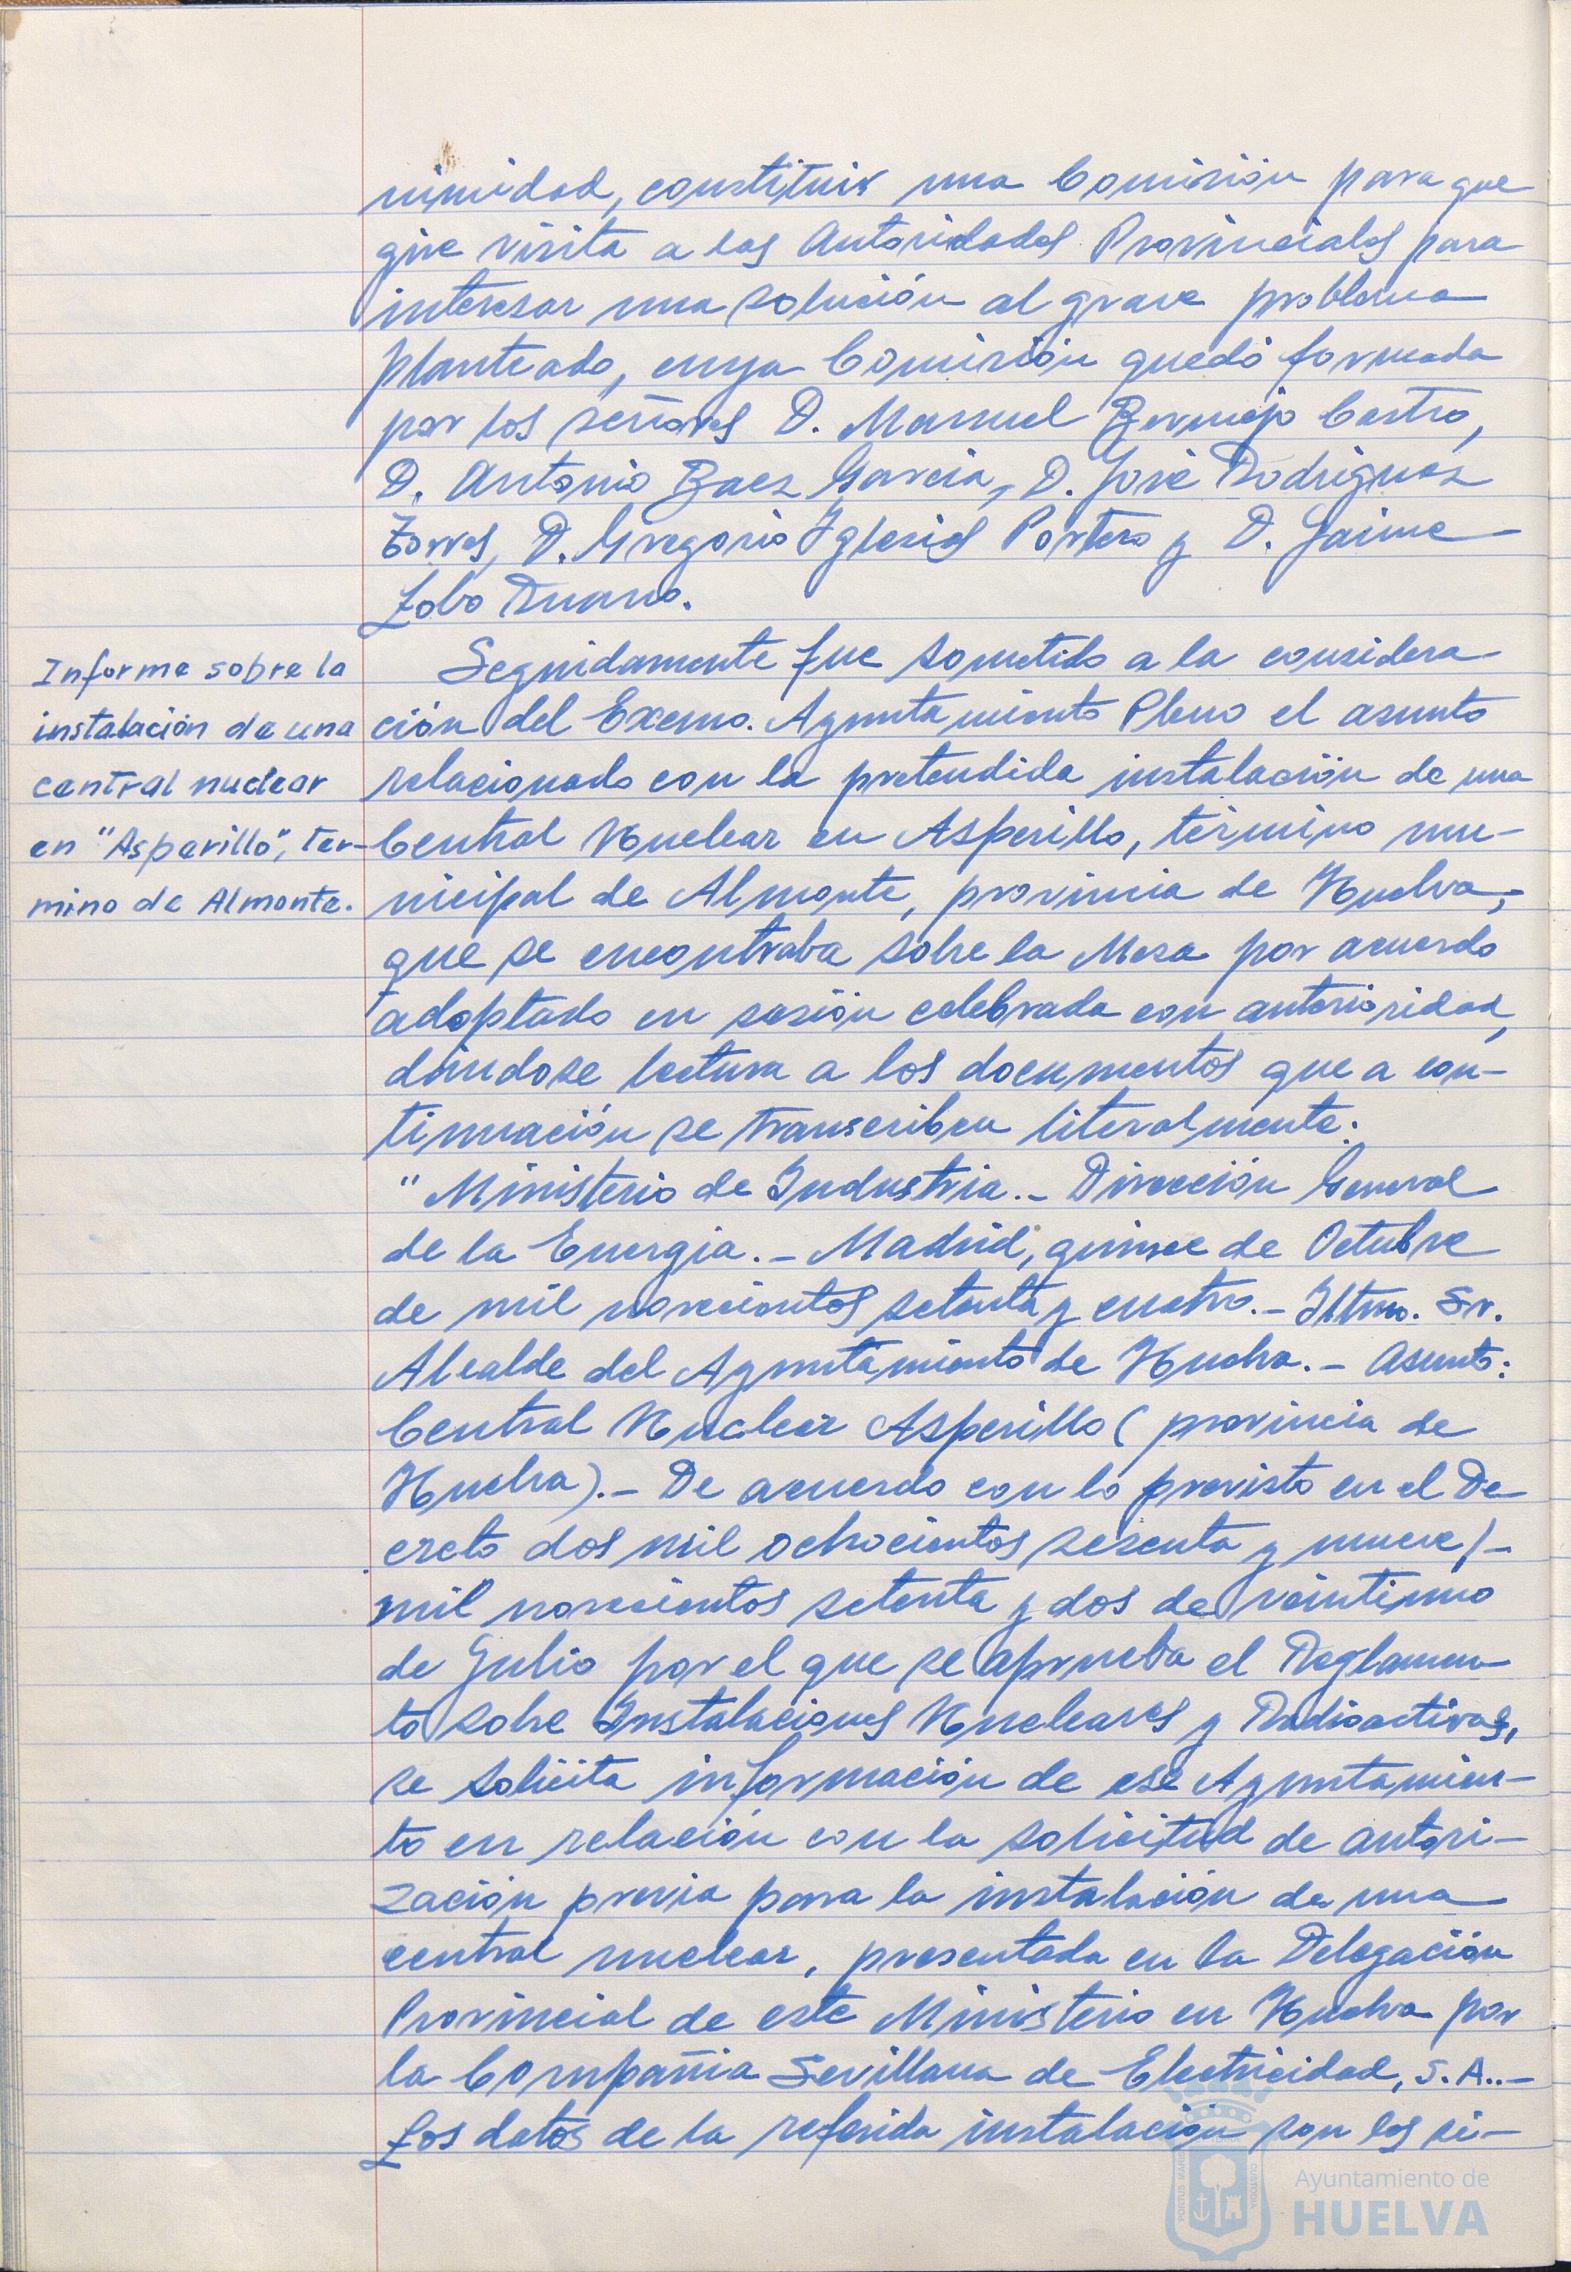 nimidad, constituir una Comisión para que
gire visita a las Autoridades Provinciales para
interesar una solución al grave problema
planteado, cuya Comisión quedó formada
por los señores D. Manuel Bermejo Castro,
D. Antonio Baez García, D. José Rodríguez
Torres, D. Gregorio Iglesias Portero y D. Jaime
Lobo Ruano.
Informe sobre la
instalación de una
central nuclear
en "Asperillo", tér-
mino de Almonte.
Seguidamente fue sometido a la considera-
ción del Excmo. Ayuntamiento Pleno el asunto
relacionado con la pretendida instalación de una
Central Nuclear en Asperillo, término mu-
nicipal de Almonte, provincia de Huelva,-
que se encontraba sobre la Mesa por acuerdo
adoptado en sesión celebrada con anterioridad,
dándose lectura a los documentos que a con-
tinuación se transcriben literalmente:
"Ministerio de Industria.- Dirección General
de la Energía.- Madrid, quince de Octubre
de mil novecientos setenta y cuatro.- Iltmo. Sr.
Alcalde del Ayuntamiento de Huelva.- Asunto:
Central Nuclear Asperillo (provincia de
Huelva).- De acuerdo con lo previsto en el De-
creto dos mil ochocientos sesenta y nueve/-
mil novecientos setenta y dos de veintiuno
de Julio por el que se aprueba el Reglamen-
to sobre Instalaciones Nucleares y Radioactivas,
se solicita información de ese Ayuntamien-
to en relación con la solicitud de autori-
zación previa para la instalación de una
central nuclear, presentada en la Delegación
Provincial de este Ministerio en Huelva por
la Compañía Sevillana de Electricidad, S.A..-
Los datos de la referida instalación son los si-
PORTUS MARIS
CUSTODIA
Ayuntamiento de
HUELVA